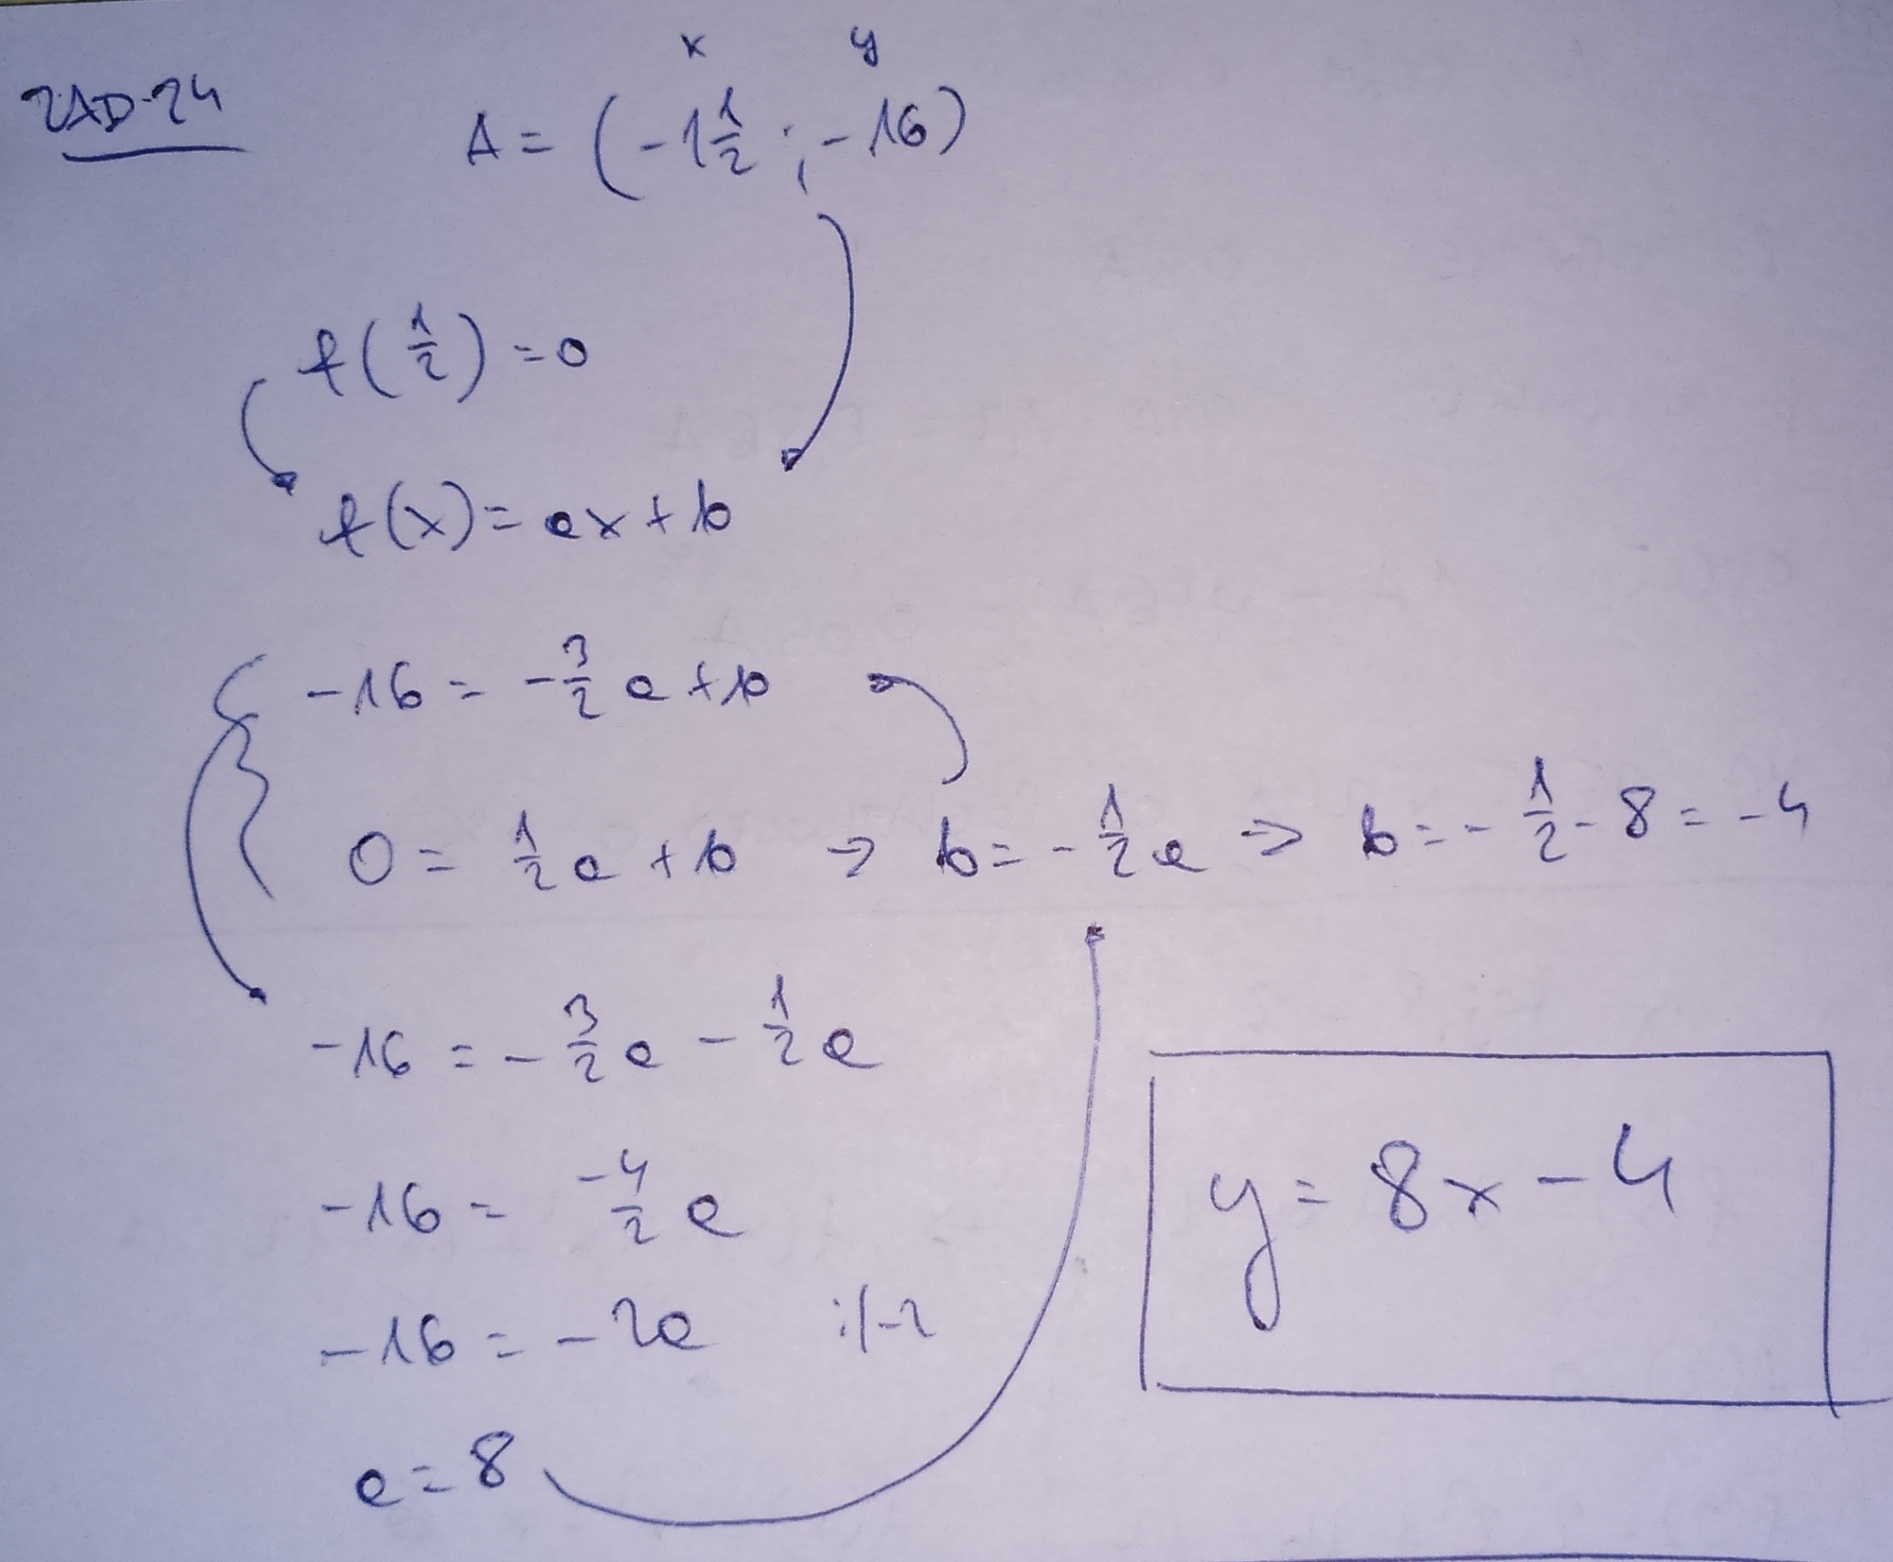 x y
ZAD.24
A = (-1 1/2 ; -16)
f(1/2) = 0
f(x) = ax + b
-16 = -3/2 a + b
0 = 1/2 a + b → b = -1/2 a ⇒ b = -1/2 · 8 = -4
-16 = -3/2 a - 1/2 a
-16 = -4/2 a
-16 = -2a :/-2
a = 8
y = 8x - 4